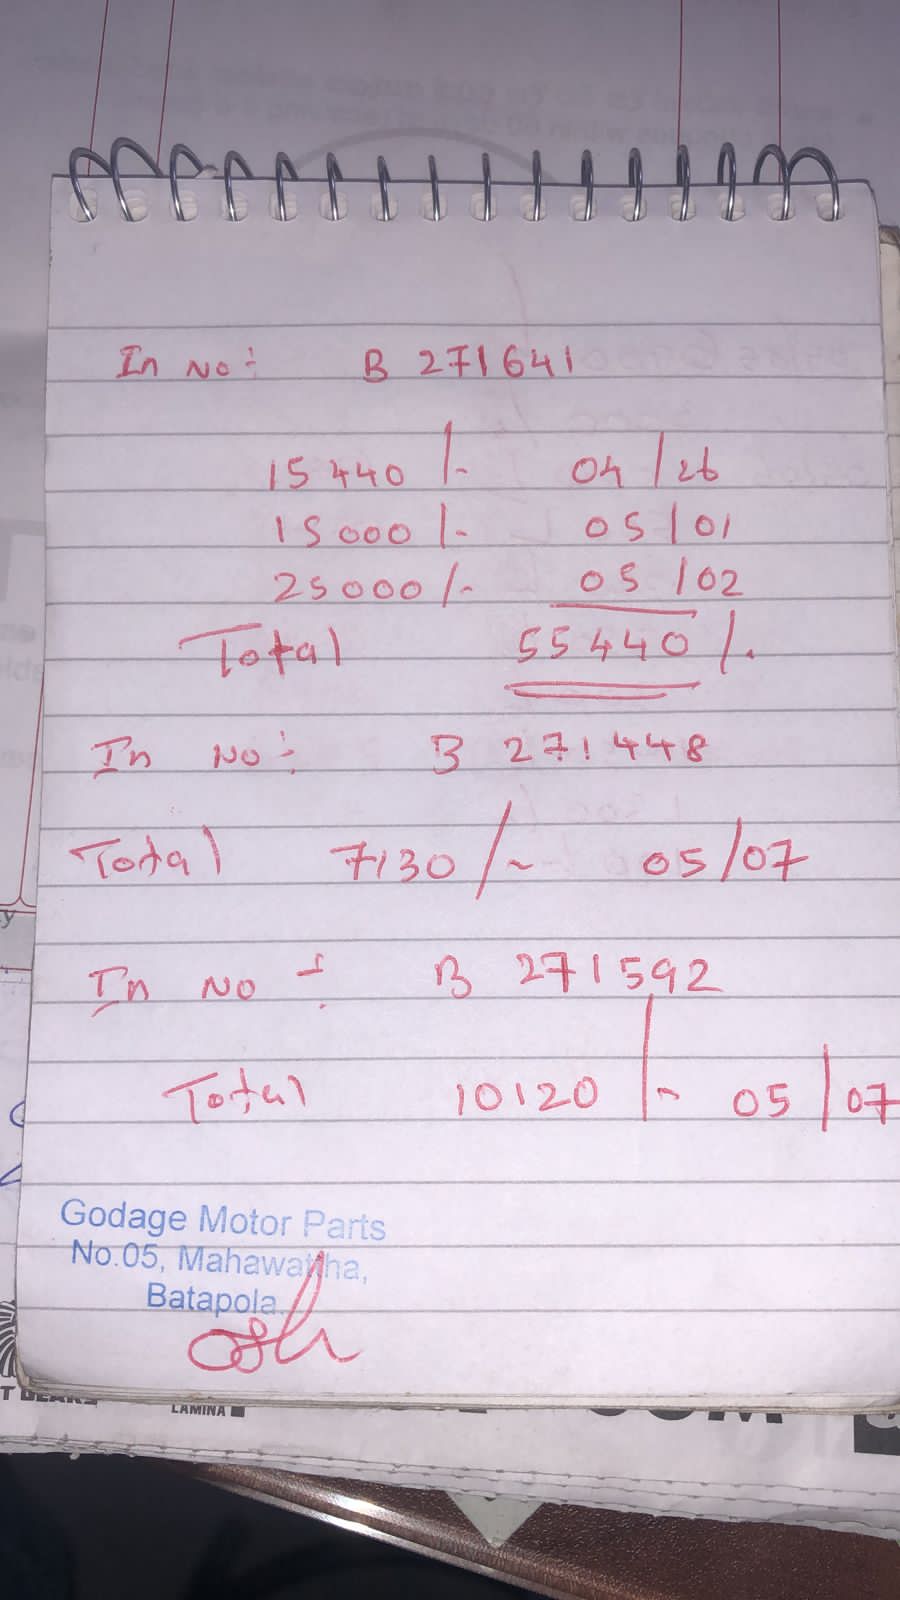 In No:- B 271641
15440/- 04/26
15000/- 05/01
25000/- 05/02
Total 55440/.
In No:- B 271448
Total 7130/~ 05/07
In No:- B 271592
Total 10120/~ 05/07
Godage Motor Parts
No.05, Mahawaththa,
Batapola.
LAMINA